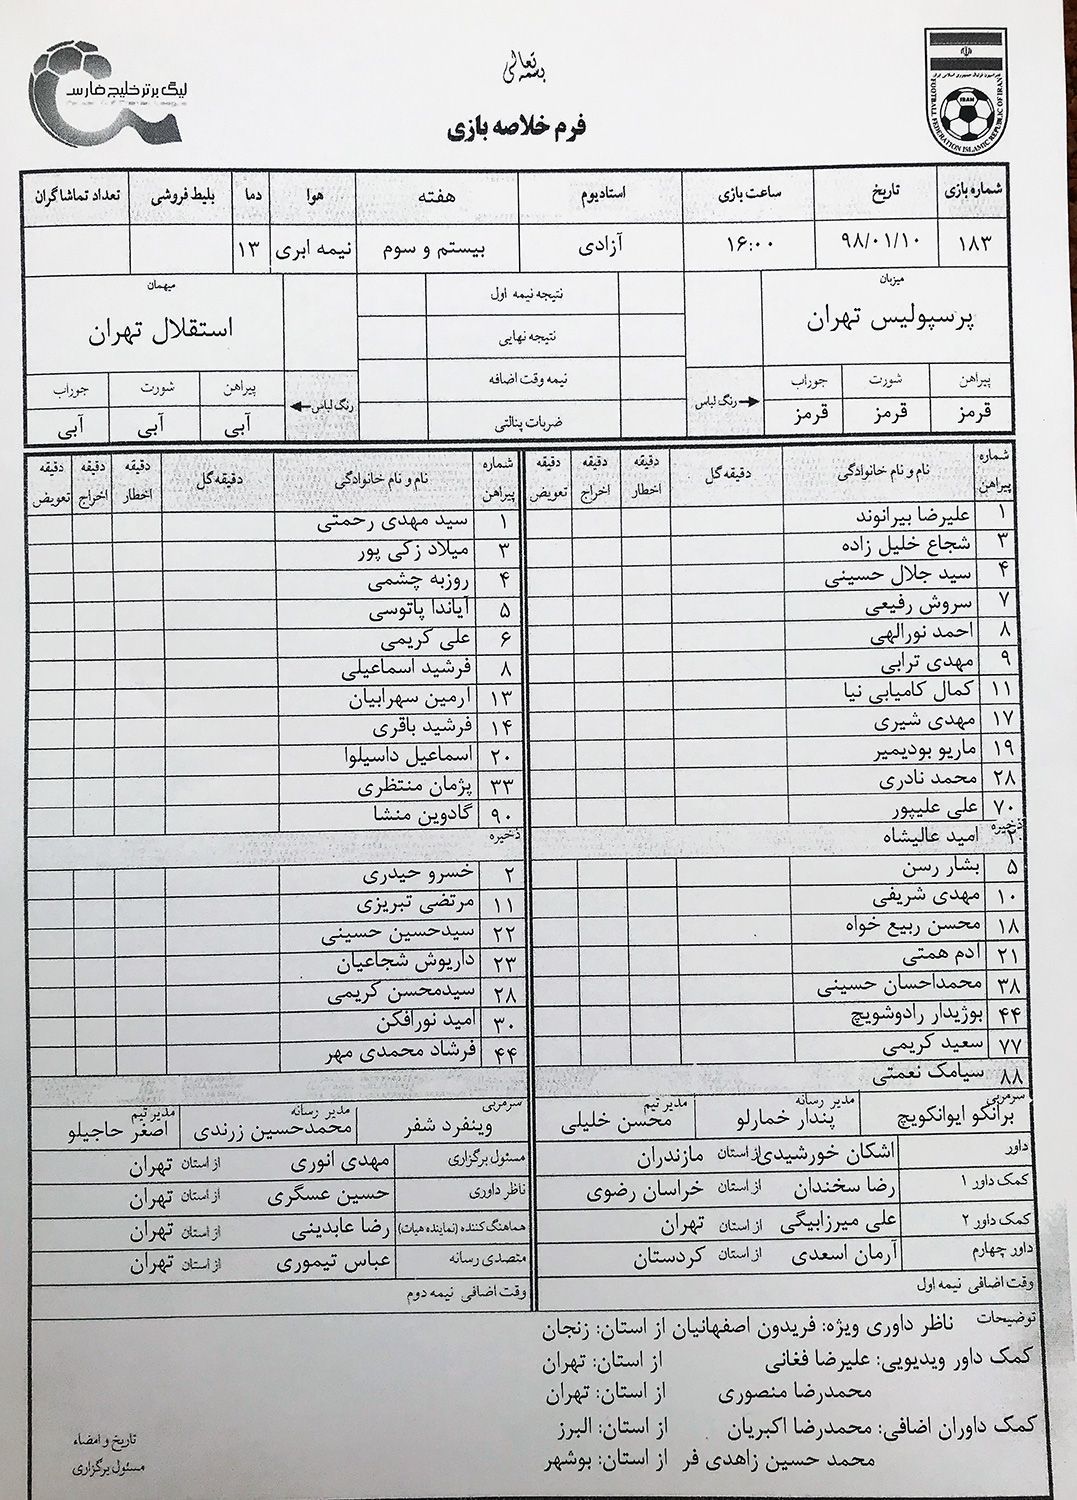 بسمه تعالی
لیگ برتر خلیج فارس
FOOTBALL FEDERATION ISLAMIC REPUBLIC OF IRAN
IRAN
فرم خلاصه بازی
شماره بازی تاریخ ساعت بازی استادیوم هفته هوا دما بلیط فروشی تعداد تماشاگران
۱۸۳ ۹۸/۰۱/۱۰ ۱۶:۰۰ آزادی بیستم و سوم نیمه ابری ۱۳
میزبان
پرسپولیس تهران
پیراهن شورت جوراب
قرمز قرمز قرمز
رنگ لباس
نتیجه نیمه اول
نتیجه نهایی
نیمه وقت اضافه
ضربات پنالتی
میهمان
استقلال تهران
پیراهن شورت جوراب
آبی آبی آبی
رنگ لباس
شماره پیراهن نام و نام خانوادگی دقیقه گل دقیقه اخطار دقیقه اخراج دقیقه تعویض
۱ علیرضا بیرانوند
۳ شجاع خلیل زاده
۴ سید جلال حسینی
۷ سروش رفیعی
۸ احمد نورالهی
۹ مهدی ترابی
۱۱ کمال کامیابی نیا
۱۷ مهدی شیری
۱۹ ماریو بودیمیر
۲۸ محمد نادری
۷۰ علی علیپور
ذخیره
۲ امید عالیشاه
۵ بشار رسن
۱۰ مهدی شریفی
۱۸ محسن ربیع خواه
۲۱ ادم همتی
۳۸ محمداحسان حسینی
۴۴ بوژیدار رادوشویچ
۷۷ سعید کریمی
۸۸ سیامک نعمتی
سرمربی برانکو ایوانکویچ
مدیر رسانه پندار خمارلو
مدیر تیم محسن خلیلی
شماره پیراهن نام و نام خانوادگی دقیقه گل دقیقه اخطار دقیقه اخراج دقیقه تعویض
۱ سید مهدی رحمتی
۳ میلاد زکی پور
۴ روزبه چشمی
۵ آیاندا پاتوسی
۶ علی کریمی
۸ فرشید اسماعیلی
۱۳ ارمین سهرابیان
۱۴ فرشید باقری
۲۰ اسماعیل داسیلوا
۳۳ پژمان منتظری
۹۰ گادوین منشا
ذخیره
۲ خسرو حیدری
۱۱ مرتضی تبریزی
۲۲ سیدحسین حسینی
۲۳ داریوش شجاعیان
۲۸ سیدمحسن کریمی
۳۰ امید نورافکن
۴۴ فرشاد محمدی مهر
سرمربی وینفرد شفر
مدیر رسانه محمدحسین زرندی
مدیر تیم اصغر حاجیلو
داور اشکان خورشیدی از استان مازندران
کمک داور ۱ رضا سخندان از استان خراسان رضوی
کمک داور ۲ علی میرزابیگی از استان تهران
داور چهارم آرمان اسعدی از استان کردستان
وقت اضافی نیمه اول
مسئول برگزاری مهدی انوری از استان تهران
ناظر داوری حسین عسگری از استان تهران
هماهنگ کننده (نماینده هیات) رضا عابدینی از استان تهران
متصدی رسانه عباس تیموری از استان تهران
وقت اضافی نیمه دوم
توضیحات ناظر داوری ویژه: فریدون اصفهانیان از استان: زنجان
کمک داور ویدیویی: علیرضا فغانی از استان: تهران
محمدرضا منصوری از استان: تهران
کمک داوران اضافی: محمدرضا اکبریان از استان: البرز
محمد حسین زاهدی فر از استان: بوشهر
تاریخ و امضاء
مسئول برگزاری